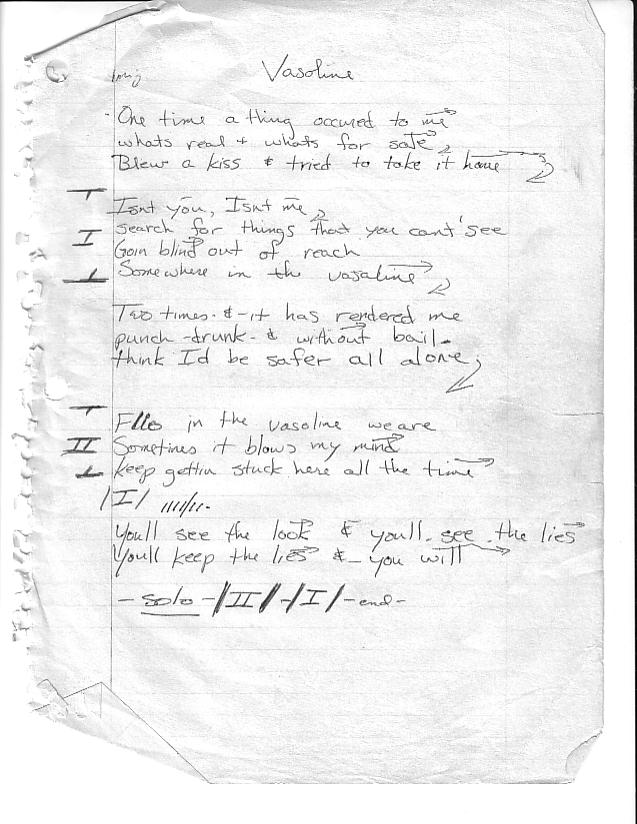 Vasoline
One time a thing occured to me
whats real + whats for sale
Blew a kiss & tried to take it home
Isnt you, Isnt me
I search for things that you cant see
Goin blind out of reach
Somewhere in the vasaline
Two times - & - it has rendered me
punch - drunk - & without bail -
think I'd be safer all alone
Flies in the vasoline we are
II Sometimes it blows my mind
keep gettin stuck here all the time
/I/
Youll see the look & youll see the lies
Youll keep the lies & - you will
- solo - /II/ - /I/ - end -